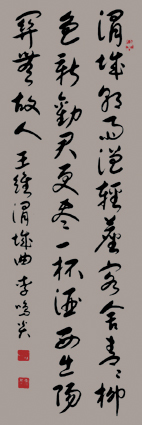 渭城朝雨浥輕塵客舍青々柳
色新勸君更盡一杯酒西出陽
關無故人 王維渭城曲 李鳴